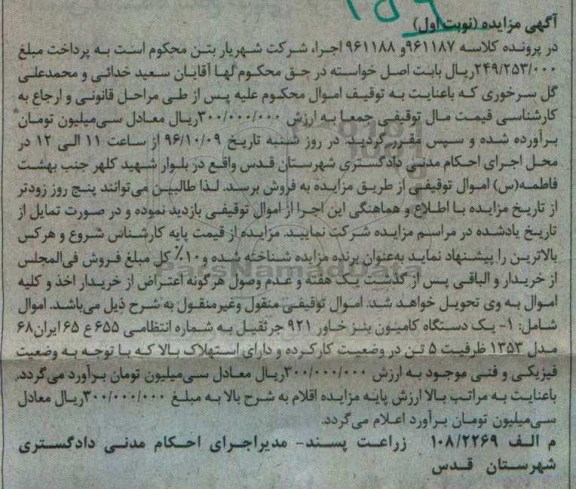 آگهی مزایده (نوبت اول)
در پرونده کلاسه ۹۶۱۱۸۷و ۹۶۱۱۸۸ اجرا، شرکت شهریار بتن محکوم است به پرداخت مبلغ
۲۴۹/۲۵۳/۰۰۰ریال بابت اصل خواسته در حق محکوم لها آقایان سعید خدائی و محمدعلی
گل سرخوری که باعنایت به توقیف اموال محکوم علیه پس از طی مراحل قانونی و ارجاع به
کارشناسی قیمت مال توقیفی جمعا به ارزش ۳۰۰/۰۰۰/۰۰۰ریال معادل سی‌میلیون تومان
برآورده شده و سپس مقرر گردید در روز شنبه تاریخ ۹۶/۱۰/۰۹ از ساعت ۱۱ الی ۱۲ در
محل اجرای احکام مدنی دادگستری شهرستان قدس واقع در بلوار شهید کلهر جنب بهشت
فاطمه(س) اموال توقیفی از طریق مزایده به فروش برسد. لذا طالبین می‌توانند پنج روز زودتر
از تاریخ مزایده با اطلاع و هماهنگی این اجرا از اموال توقیفی بازدید نموده و در صورت تمایل از
تاریخ یادشده در مراسم مزایده شرکت نمایید. مزایده از قیمت پایه کارشناس شروع و هرکس
بالاترین را پیشنهاد نماید به‌عنوان برنده مزایده شناخته شده و ۱۰٪ کل مبلغ فروش فی‌المجلس
از خریدار و الباقی پس از گذشت یک هفته و عدم وصول هرگونه اعتراض از خریدار اخذ و کلیه
اموال به وی تحویل خواهد شد. اموال توقیفی منقول وغیرمنقول به شرح ذیل می‌باشد. اموال
شامل: ۱- یک دستگاه کامیون بنز خاور ۹۲۱ جرثقیل به شماره انتظامی ۶۵۵ ع ۶۵ ایران۶۸
مدل ۱۳۵۳ ظرفیت ۵ تن در وضعیت کارکرده و دارای استهلاک بالا که با توجه به وضعیت
فیزیکی و فنی موجود به ارزش ۳۰۰/۰۰۰/۰۰۰ریال معادل سی‌میلیون تومان برآورد می‌گردد.
باعنایت به مراتب بالا ارزش پایه مزایده اقلام به شرح بالا به مبلغ ۳۰۰/۰۰۰/۰۰۰ریال معادل
سی‌میلیون تومان برآورد اعلام می‌گردد.
م الف ۱۰۸/۲۲۶۹ زراعت پسند- مدیراجرای احکام مدنی دادگستری
شهرستان قدس